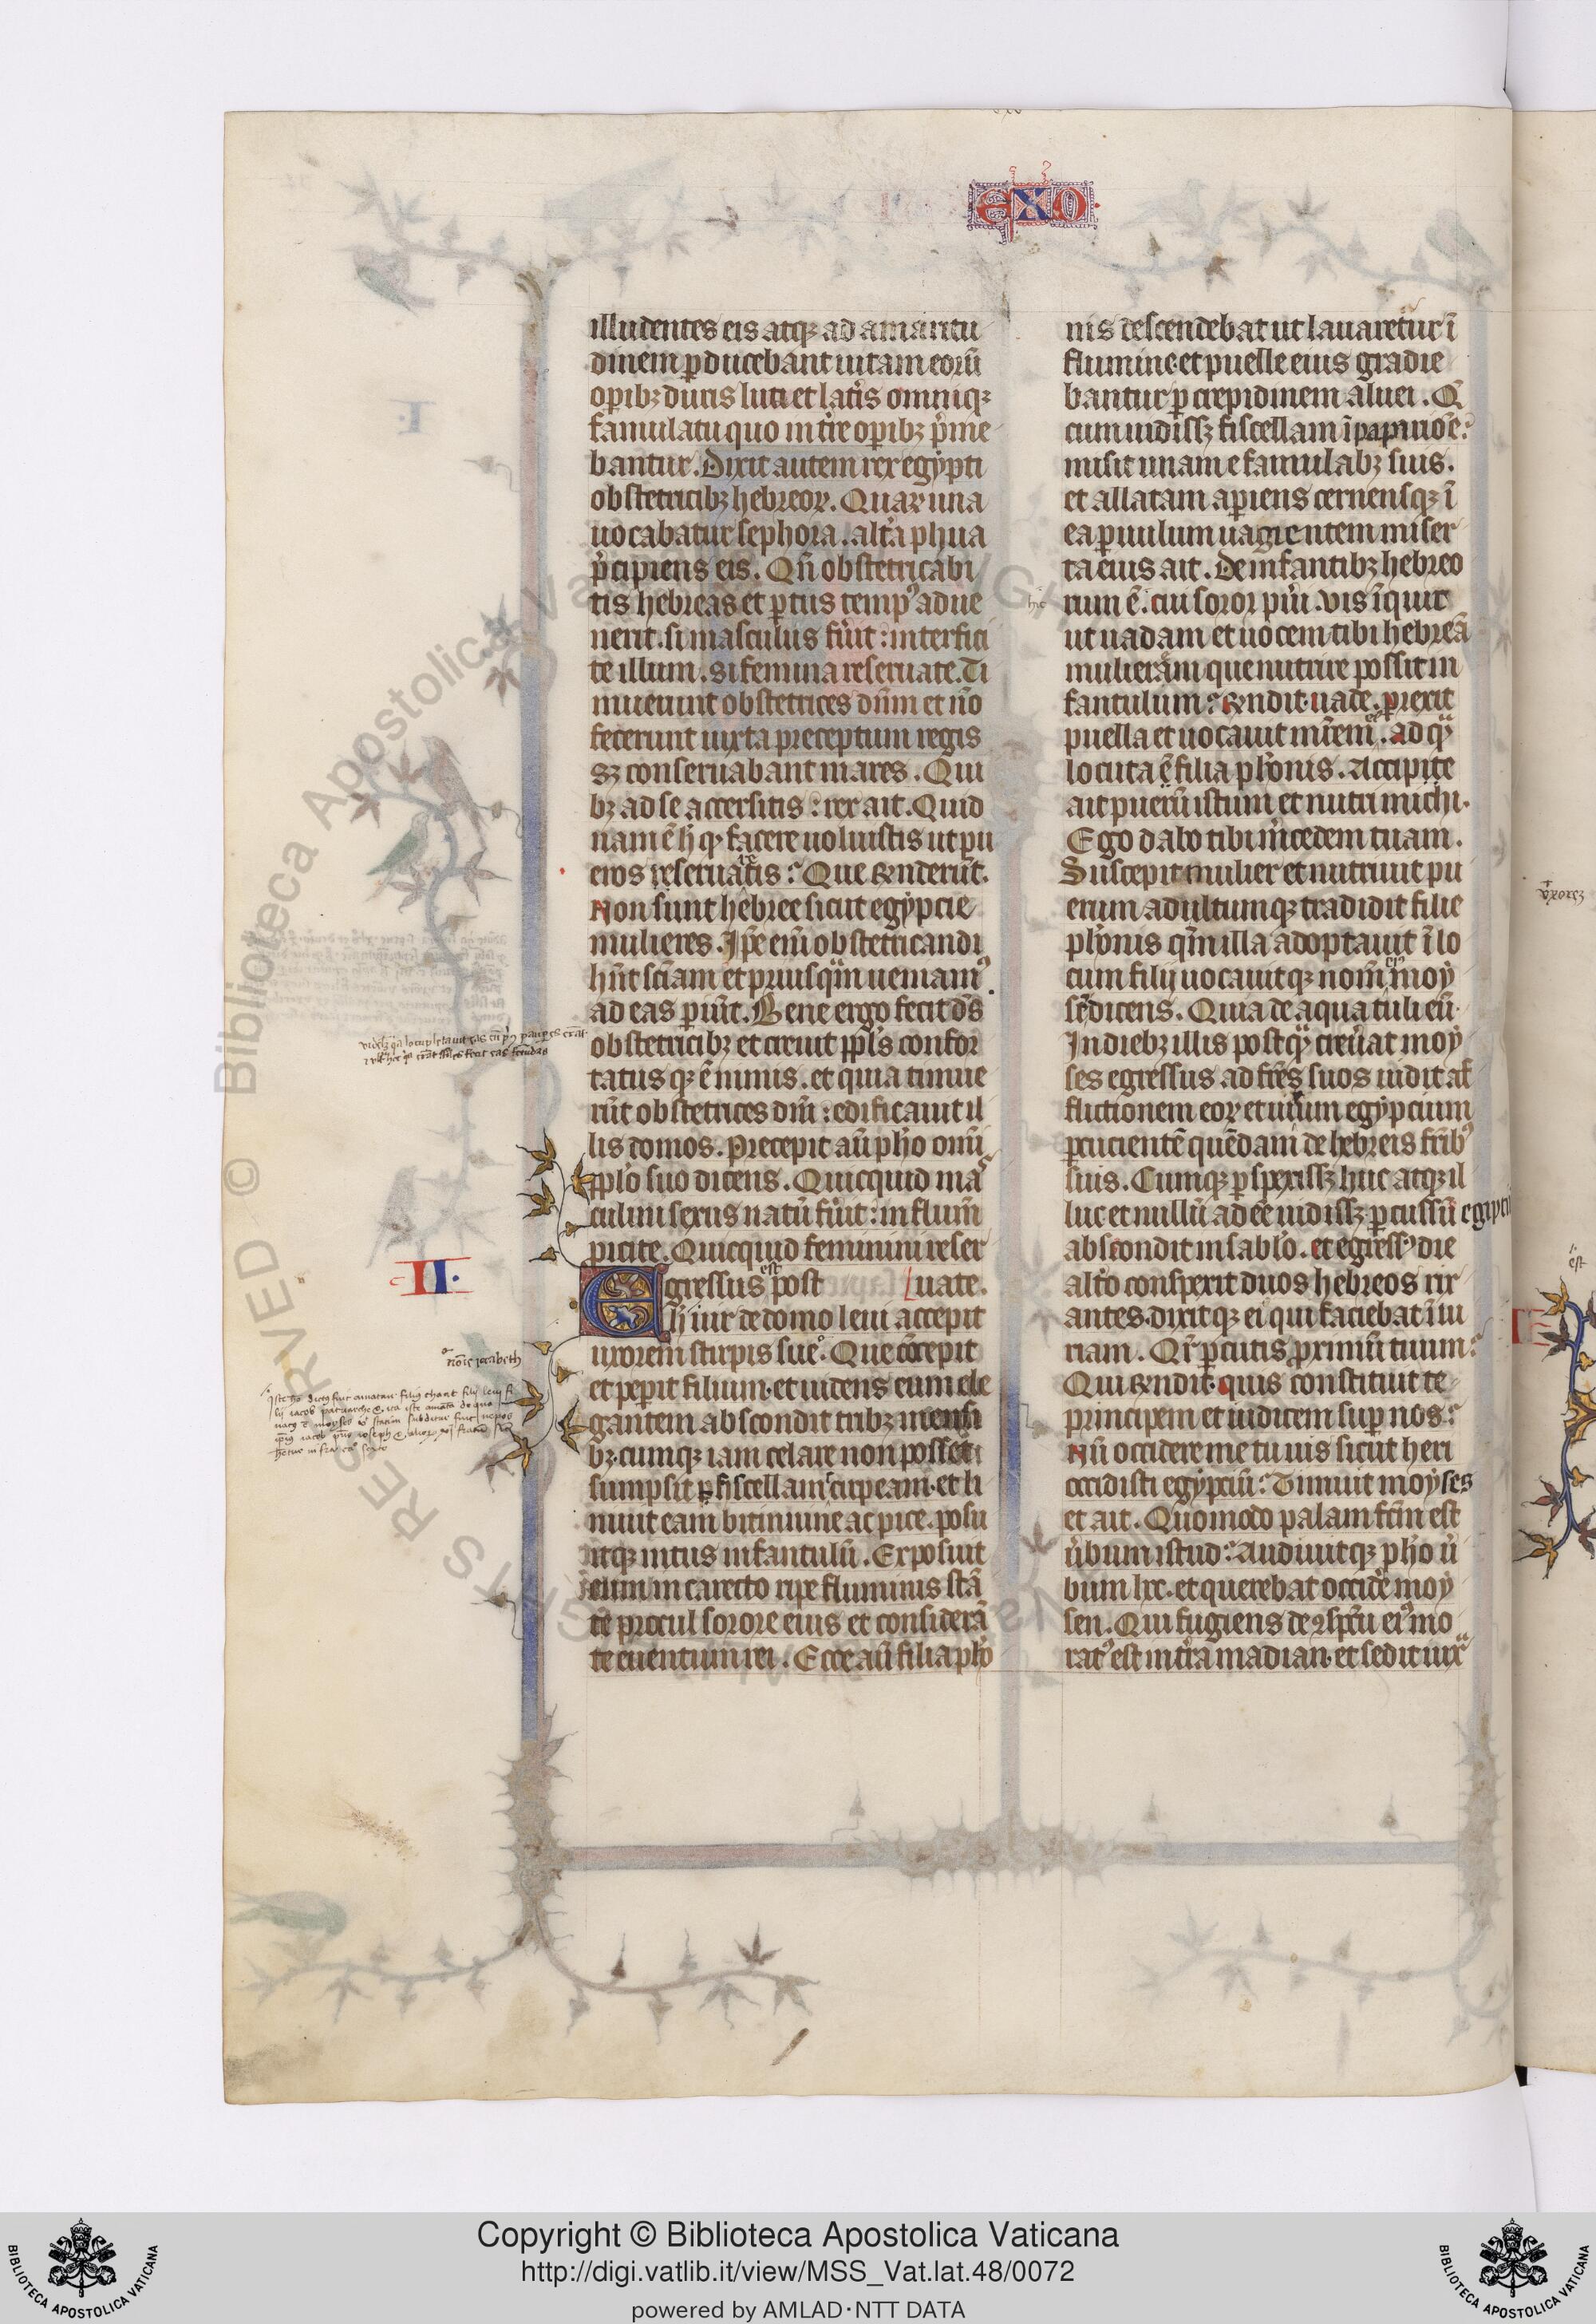 EXO
illudentes eis atqꝫ ad amaritu
dinem ꝑducebant uitam eorū
oꝑibꝫ duris luti et lat̾is omniqꝫ
famulatu quo in tr̄e oꝑibꝫ p̾me
bantur. Dixit autem rex egẏpti
obstetricibꝫ hebreoꝝ. Quaꝝ una
uocabatur sephora. alt̾a phua
p̾cipiens eis. Qn̄ obstetricabi
tis hebreas et ꝑtus tempꝰ adue
nerit. si masculus fu̾it: interfici
te illum. si femina reseruate. Ti
muerunt obstetrices dn̄m et nō
fecerunt iuxta preceptum regis
sꝫ conseruabant mares. Qui
bꝫ ad se accersitis: rex ait. Quid
nam ē h̾ qͥ facere uoluistis ut pu
eros reseruatis: Que rn̄derūt.
Non sunt hebree sicut egẏpcie
mulieres. Ip̄e em̄ obstetricandi
hn̄t sc̄iam et priusqᷓm ueniamꝰ
ad eas pariūt. Bene ergo fecit dn̄s
obstetricibꝫ et creuit ppl̄s confor
tatus qꝫ ē nimis. et quia timue
rūt obstetrices dm̄: edificauit il
lis domos. Precepit au̅ ph̾o om̄i
ppl̄o suo dicens. Quicquid mas
culini sexus natū fu̾it: in flum̄
ꝓicite. Quicquid feminini reser
II.
Egressus est post uate.
h̾ uir de domo leui accepit
uxorem stirpis sue. Que cōcepit
et peꝑit filium. et uidens eum ele
gantem abscondit tribꝫ mensi
bꝫ. cumqꝫ iam celare non posset
sumpsit fiscellam scirpeam. et li
niuit eam bitimine ac pice. posu
itqꝫ intus infantulū. Exposuit
eum in carecto ripe fluminis stā
te procul sorore eius et considerā
te euentum rei. Ecce au̅ filia ph̾o
nis descendebat ut lauaretur ī
flumine. et puelle eius gradie
bantur ꝑ crepidinem aluei. Q̄
cum uidissꝫ fiscellam ī papirione:
misit unam e famulabꝫ suis.
et allatam aꝑiens cernensqꝫ ī
ea ꝑuulum uagientem miser
ta eius ait. De infantibꝫ hebreo
rum ē. cui soror pu̾i. vis īquit
ut uadam et uocem tibi hebreā
mulierem que nutrire possit in
fantulum: Rn̄dit. uade. ꝑrexit
puella et uocauit mr̄em. ad qᷓ
locuta ē filia ph̾onis. Accipite
ait pueru̅ istum et nutri michi.
Ego dabo tibi m̾cedem tuam.
Suscepit mulier et nutriuit pu
erum adultumqꝫ tradidit filie
ph̾onis qm̄ illa adoptauit ī lo
cum filij uocauitqꝫ nom̄ eiꝰ moẏ
ses dicens. Quia de aqua tuli eu̅.
In diebꝫ illis postqᷓ creu̾at moẏ
ses egressus ad fr̄es suos uidit af
flictionem eoꝝ et uirum egẏpcium
ꝑcucientē quēdam de hebreis fr̄ibꝰ
suis. Cumqꝫ ꝑspexissꝫ huc atqꝫ il
luc et nullū adēe uidissꝫ ꝑcussu̅ egiptiu̅
abscondit in sabl̾o. et egressꝰ die
alt̾o conspexit duos hebreos rix
antes. dixitqꝫ ei qui faciebat īiu
riam. Qr̄ ꝑcutis ꝓximu̅ tuum:
Qui rn̄dit. quis constituit te
principem et iudicem suꝑ nos:
Nū occidere me tu uis sicut heri
occidisti egẏpciu̅: Timuit moẏses
et ait. Quomodo palam fc̄m est
u̾bum istud: Audiuitqꝫ ph̾o u̾
bum hoc. et querebat occid̾e moẏ
sen. Qui fugiens de ꝯspc̄u eiꝰ mo
ratꝰ est in tr̄a madian. et sedit iux
noīe iocabeth
hic
uxores
est
Copyright © Biblioteca Apostolica Vaticana
http://digi.vatlib.it/view/MSS_Vat.lat.48/0072
powered by AMLAD·NTT DATA
BIBLIOTECA APOSTOLICA VATICANA
BIBLIOTECA APOSTOLICA VATICANA